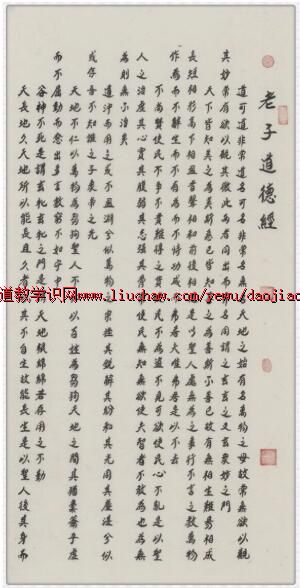 老子道德經
道可道非常道名可名非常名無天地之始有名萬物之母故常無欲以觀
其妙常有欲以觀其徼此兩者同出而名同謂之玄玄之又玄眾妙之門
天下皆知美之為美斯惡已皆知善之為善斯不善已故有無相生難易相成
長短相形高下相盈音聲相和前後相隨是以聖人處無為之事行不言之教萬物
作焉而不辭生而不有為而不恃功成弗居夫唯弗居是以不去
不尚賢使民不爭不貴難得之貨使民不為盜不見可欲使民心不亂是以聖
人之治虛其心實其腹弱其志強其骨常使民無知無欲使夫智者不敢為也為無
為則無不治矣
道沖而用之或不盈淵兮似萬物之宗挫其銳解其紛和其光同其塵湛兮似
或存吾不知誰之子象帝之先
天地不仁以萬物為芻狗聖人不以百姓為芻狗天地之間其猶橐籥乎虛
而不屈動而愈出多言數窮不如守中
谷神不死是謂玄牝玄牝之門是天地根綿綿若存用之不勤
天長地久天地所以能長且久者其不自生故能長生是以聖人後其身而
道教学识网.www.liucham.com/yewu/daojiao